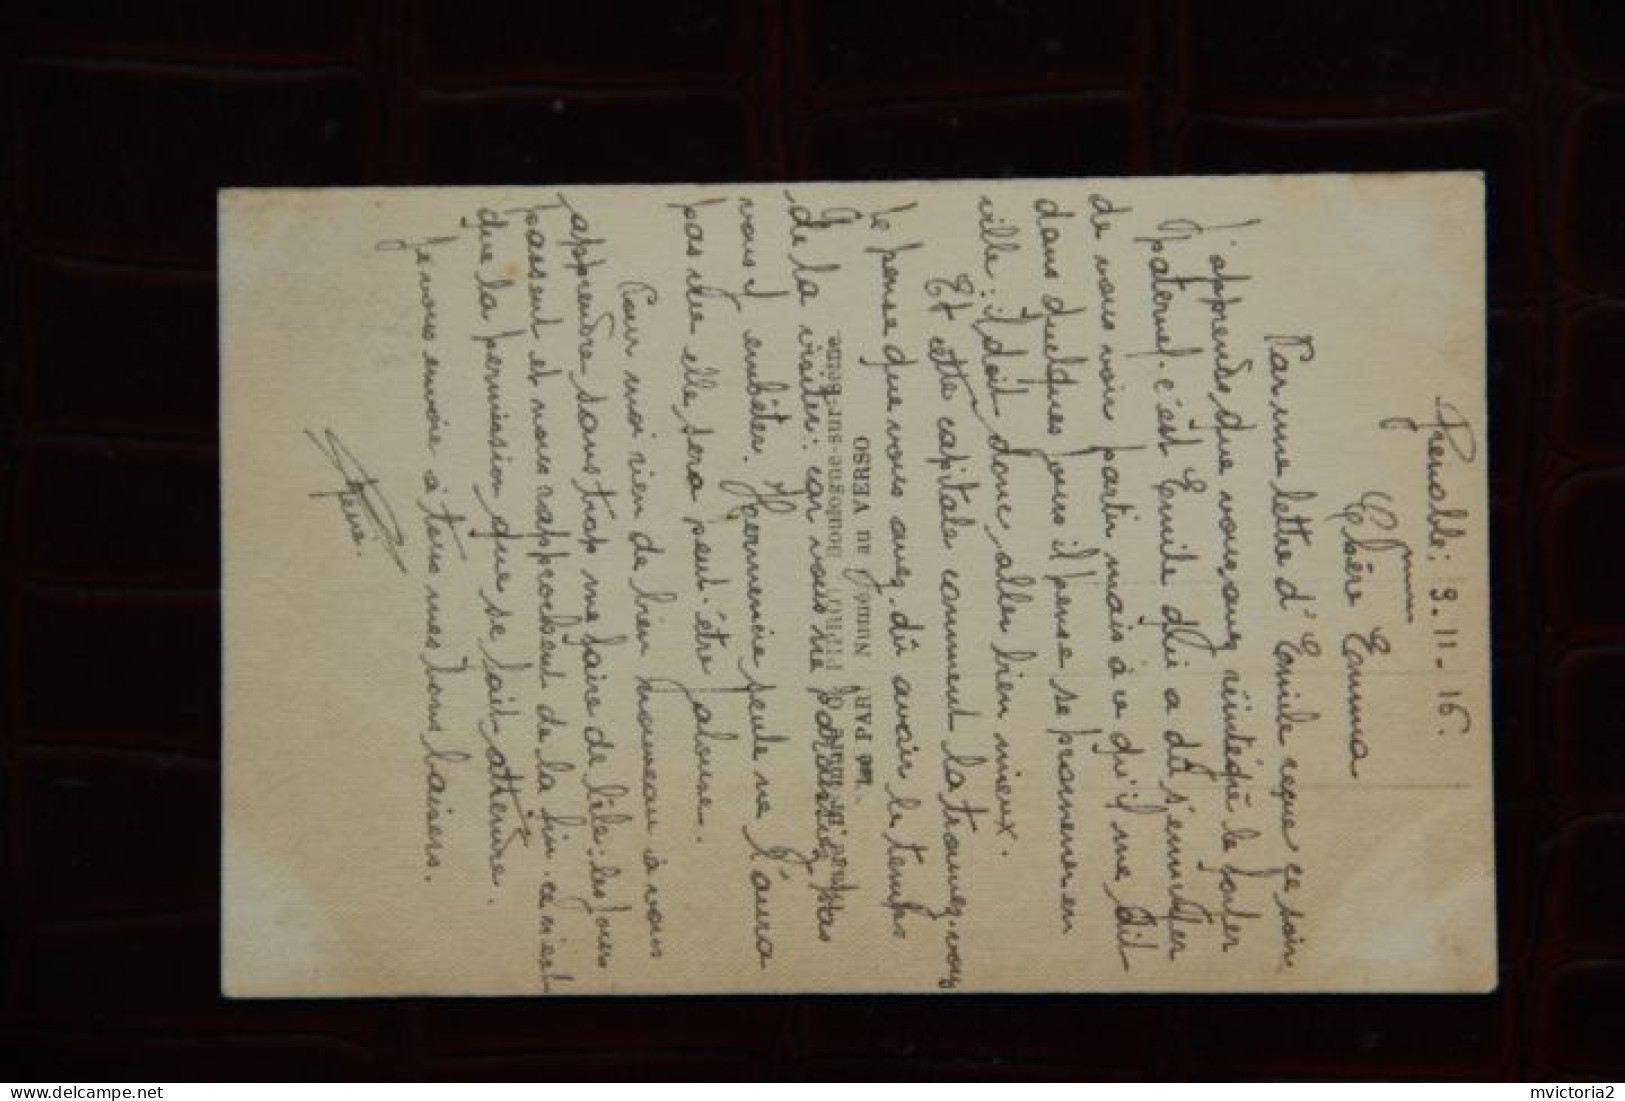 Grenoble. 9.11-16.
Chère Emma
Par une lettre d'Emile reçue ce soir
j'apprends que vous avez réintégré le foyer
paternel. c'est Emile qui a dû s'ennuyer
de vous voir partir mais à ce qu'il me dit
dans quelques jours il pense se promener en
ville : il doit donc aller bien mieux.
Et cette capitale comment la trouvez-vous
je pense que vous avez dû avoir le temps
de la visiter : car vous pas
vous y embêter. Hermencie seule ne l'aura
pas vue elle sera peut-être jalouse.
Pour moi rien de bien nouveau à vous
apprendre sans trop me faire de bile : les jours
passent et nous rapprochent de la fin. ce n'est
que la permission que se fait attendre.
Je vous envoie à tous mes bons baisers.
au VERSO
mvictoria2